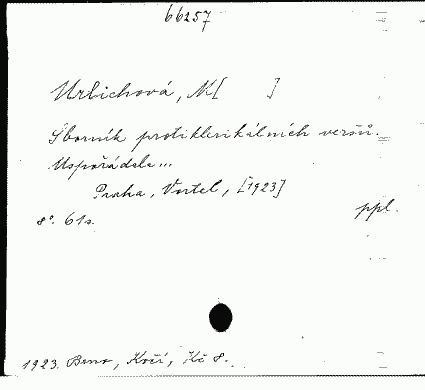 66257
Urbichová, M[ ]
Sborník protiklerikálních veršů.
Uspořádala...
Praha, Vortel, [1923]
ppl.
8°. 61s.
1923. Brno, Kočí, Kč 8.